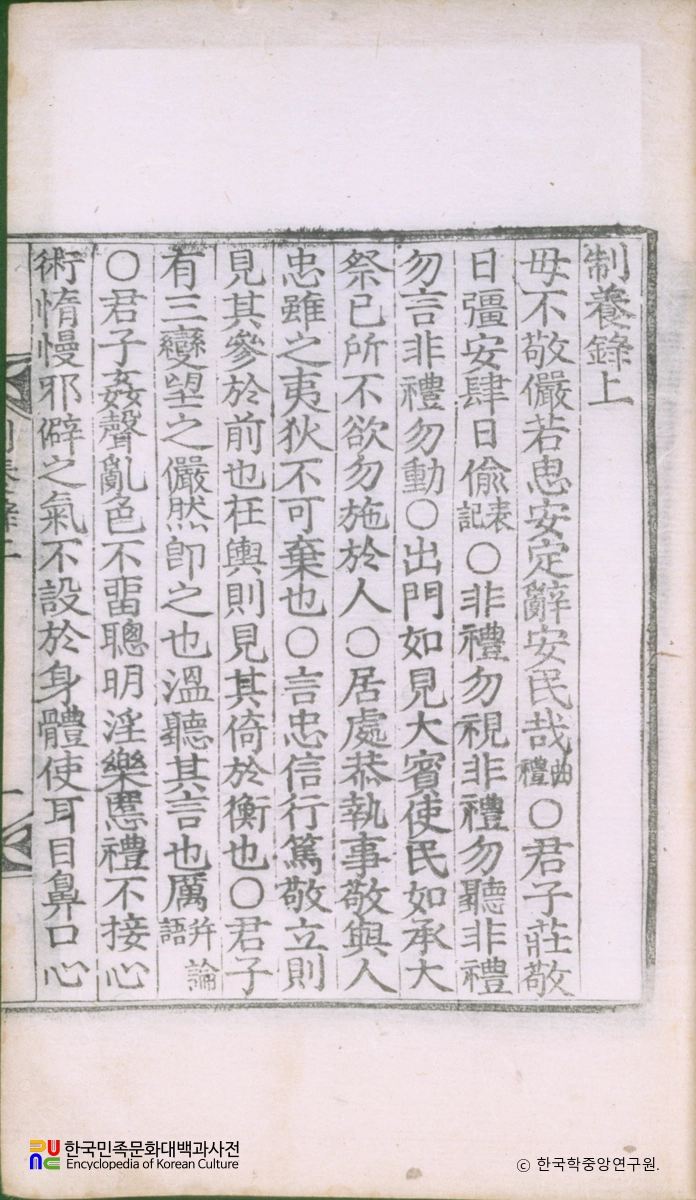 制養錄上
毋不敬儼若思安定辭安民哉曲禮○君子莊敬
日彊安肆日偸表記○非禮勿視非禮勿聽非禮
勿言非禮勿動○出門如見大賓使民如承大
祭已所不欲勿施於人○居處恭執事敬與人
忠雖之夷狄不可棄也○言忠信行篤敬立則
見其參於前也在輿則見其倚於衡也○君子
有三變望之儼然卽之也溫聽其言也厲并論語
○君子姦聲亂色不畱聰明淫樂慝禮不接心
術惰慢邪僻之氣不設於身體使耳目鼻口心
한국민족문화대백과사전
Encyclopedia of Korean Culture
© 한국학중앙연구원.